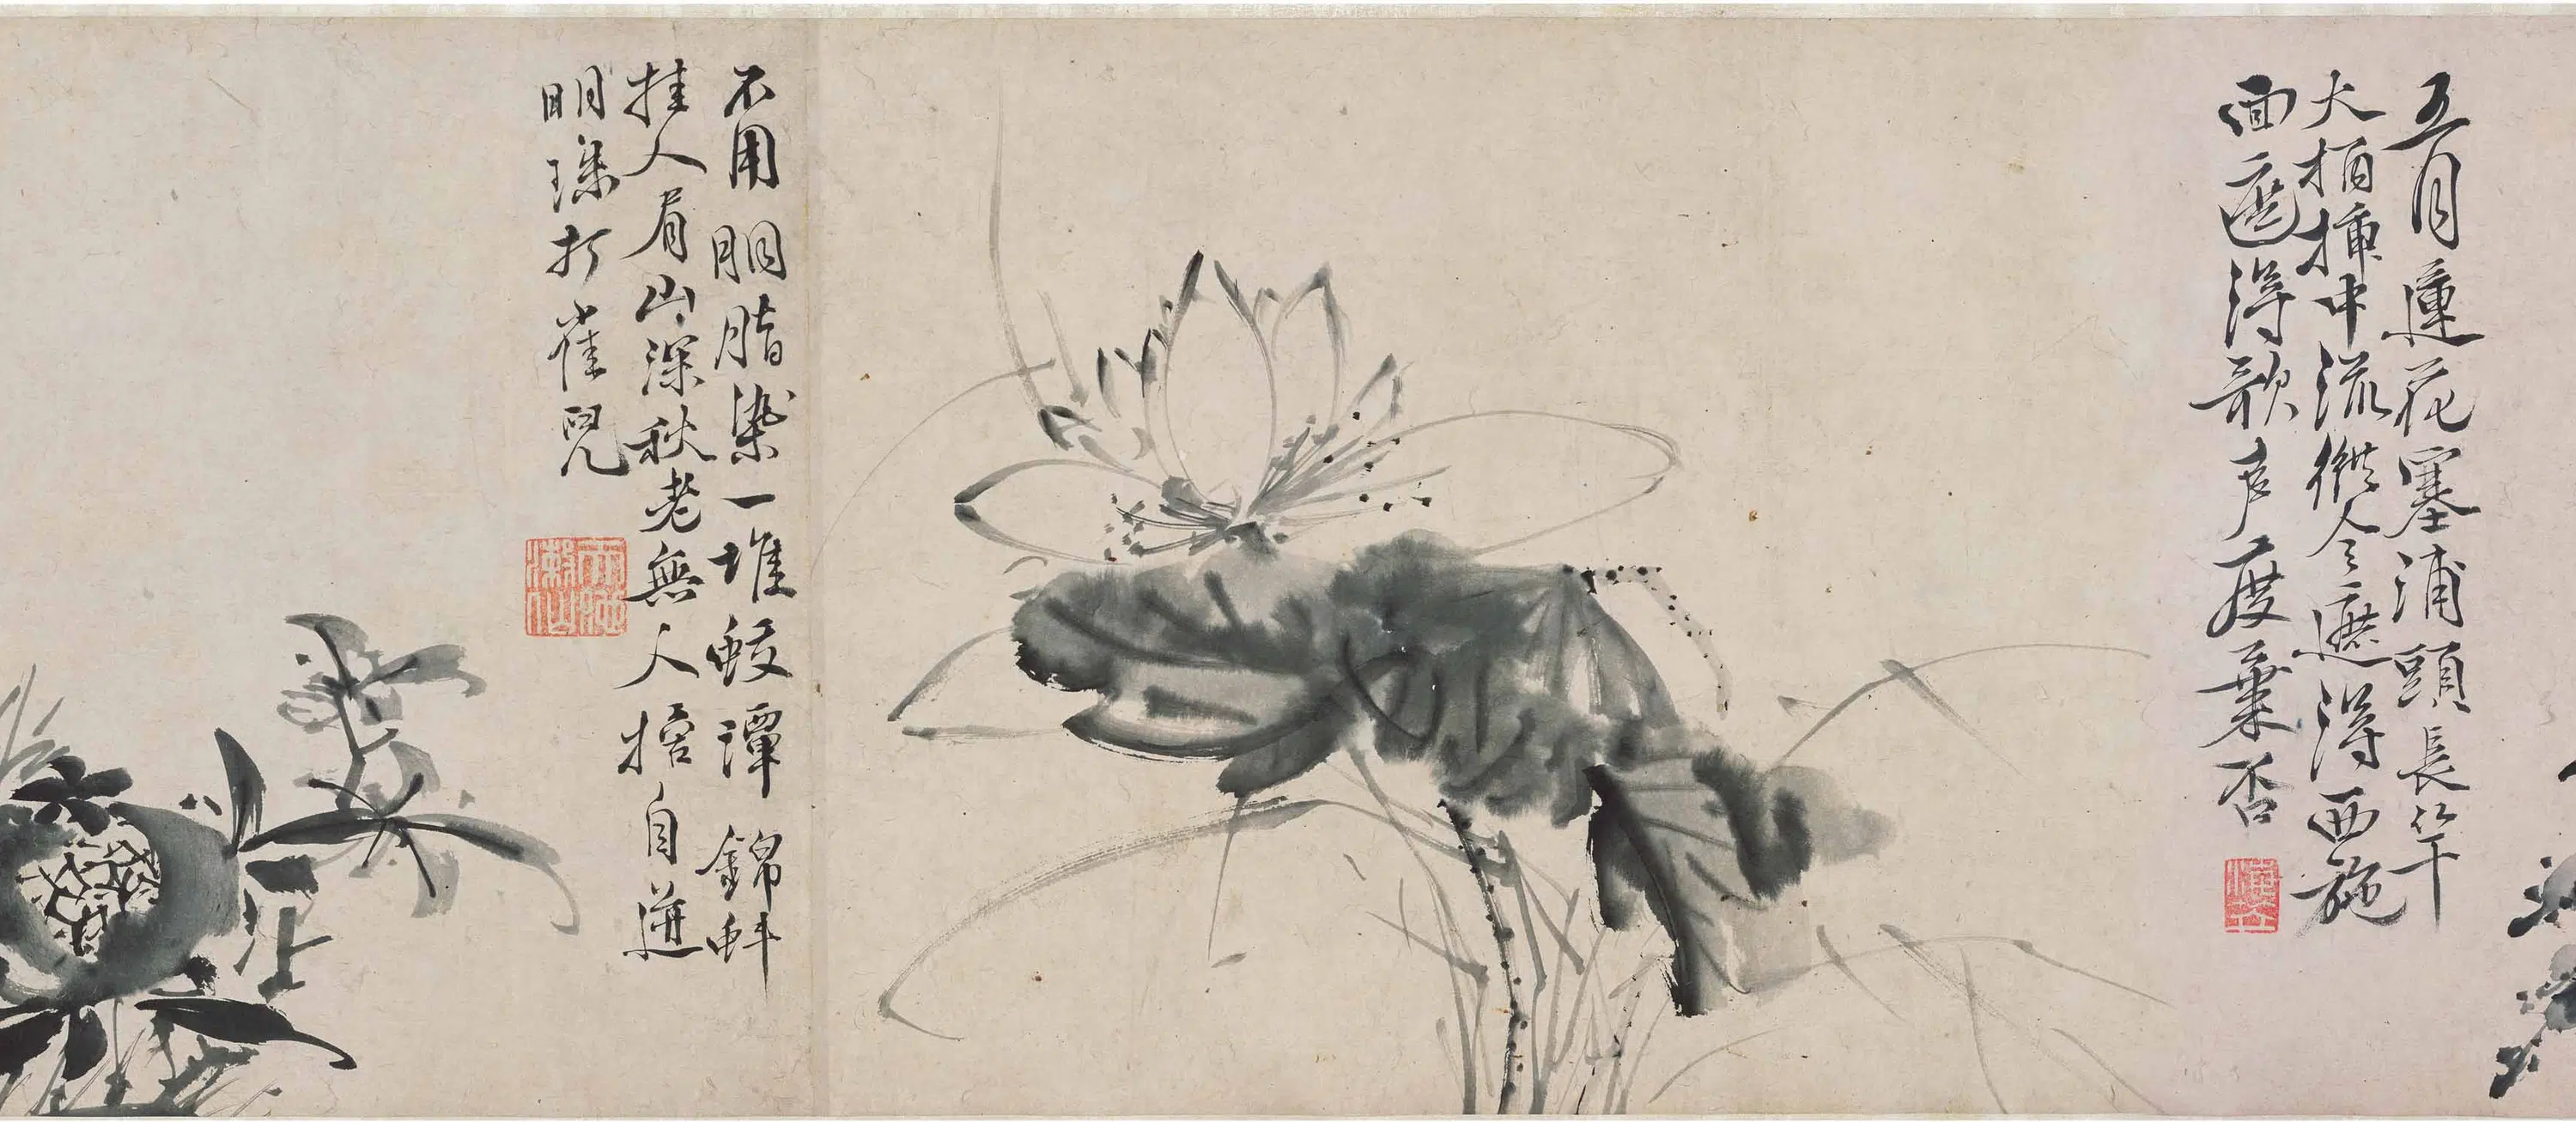 五月蓮花塞浦頭長竿
尺栢揷中流縱令遮得西施
面遮得歌声度葉否
不用胭脂染一堆蛟潭錦蚌
挂人眉山深秋老無人摘自迸
明珠打雀兒